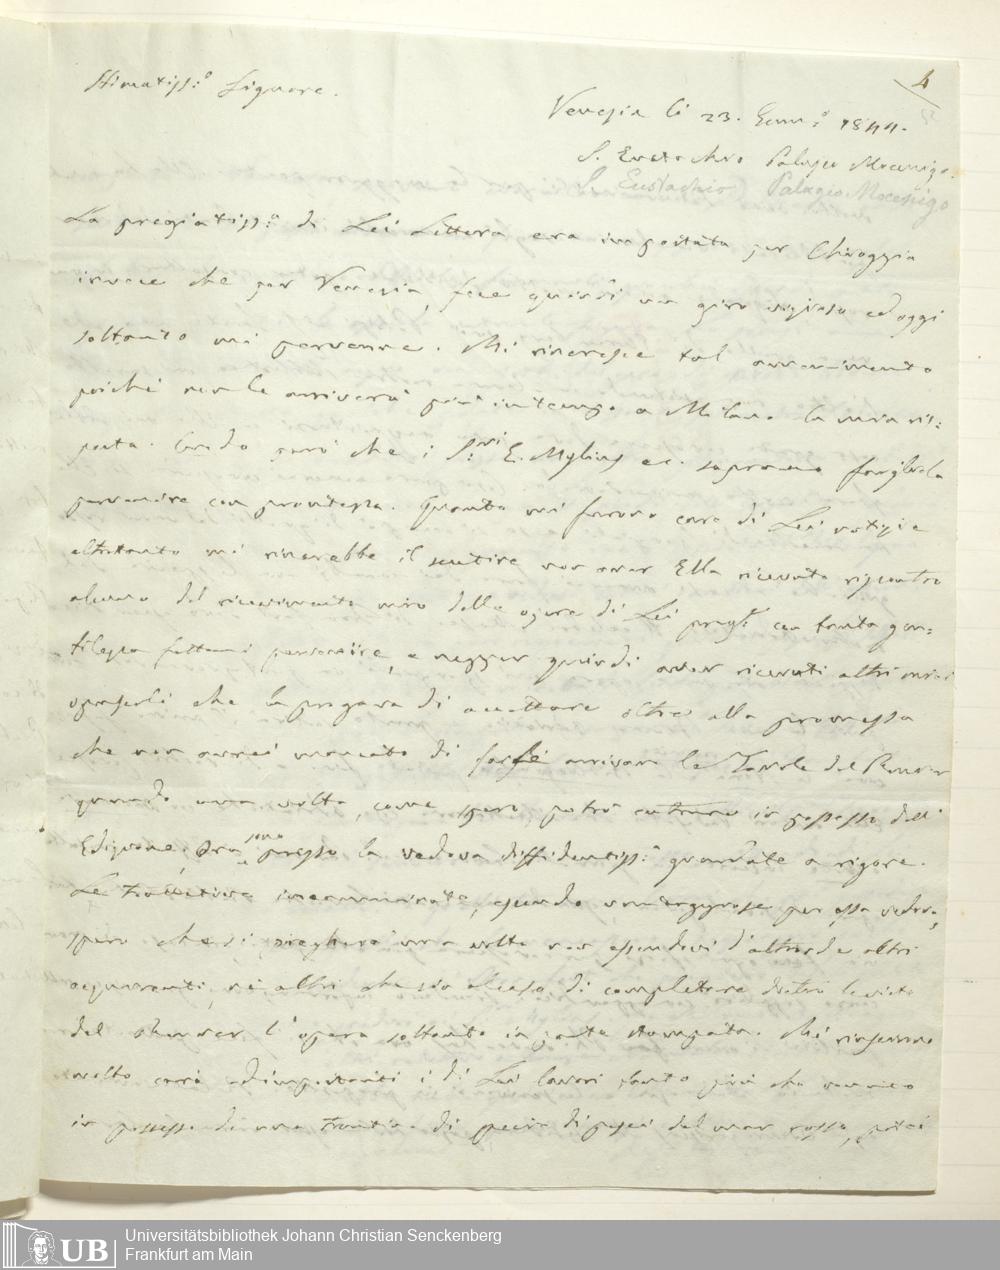 Stimatiss:º Signore.
4
Venezia li 23. Genn:º 1844.
S. Eustachio Palazzo Mocenigo.
S. Eustachio Palazzo Mocenigo
La pregiatiss:ª di Lei Lettera era impostata per Chioggia
invece che per Venezia, fece quindi un giro vizioso ed oggi
soltanto mi pervenne. Mi rincresce tal avvenimento
poiché non le arriverà più in tempo a Milano la mia ris:
posta. Credo però che i S:ri E. Mylius ec. sapranno fargliela
pervenire con prontezza. Quanto mi furono care di Lei notizie
altretanto mi rincrebbe il sentire non aver Ella ricevuto riscontro
alcuno del ricevimento mio delle opere di Lei preg:e con tanta gen:
tilezza fattemi pervenire, e neppur quindi aver ricevuti altri miei
opuscoli che la pregava di accettare oltre alla promessa
che non avrei mancato di farle arrivare le Tavole del Renier
quando una volta, come spero, potrò entrare in possesso dell'
Edizione. Ora sono presso la vedova diffidentiss:ª guardate a rigore.
Le trattative incamminate, essendo per essa vedova,
spero che si pieghera una volta non essendovi d'altronde altri
acquirenti, né altri che sia al caso di completare dietro le viste
del Renier l'opera soltanto in parte stampata. Mi riuscirono
molto cari ed importanti i di Lei lavori tanto più che venni
in possesso di una trentina di specie di pesci del mar rosso, poiché
Universitätsbibliothek Johann Christian Senckenberg
Frankfurt am Main
UB